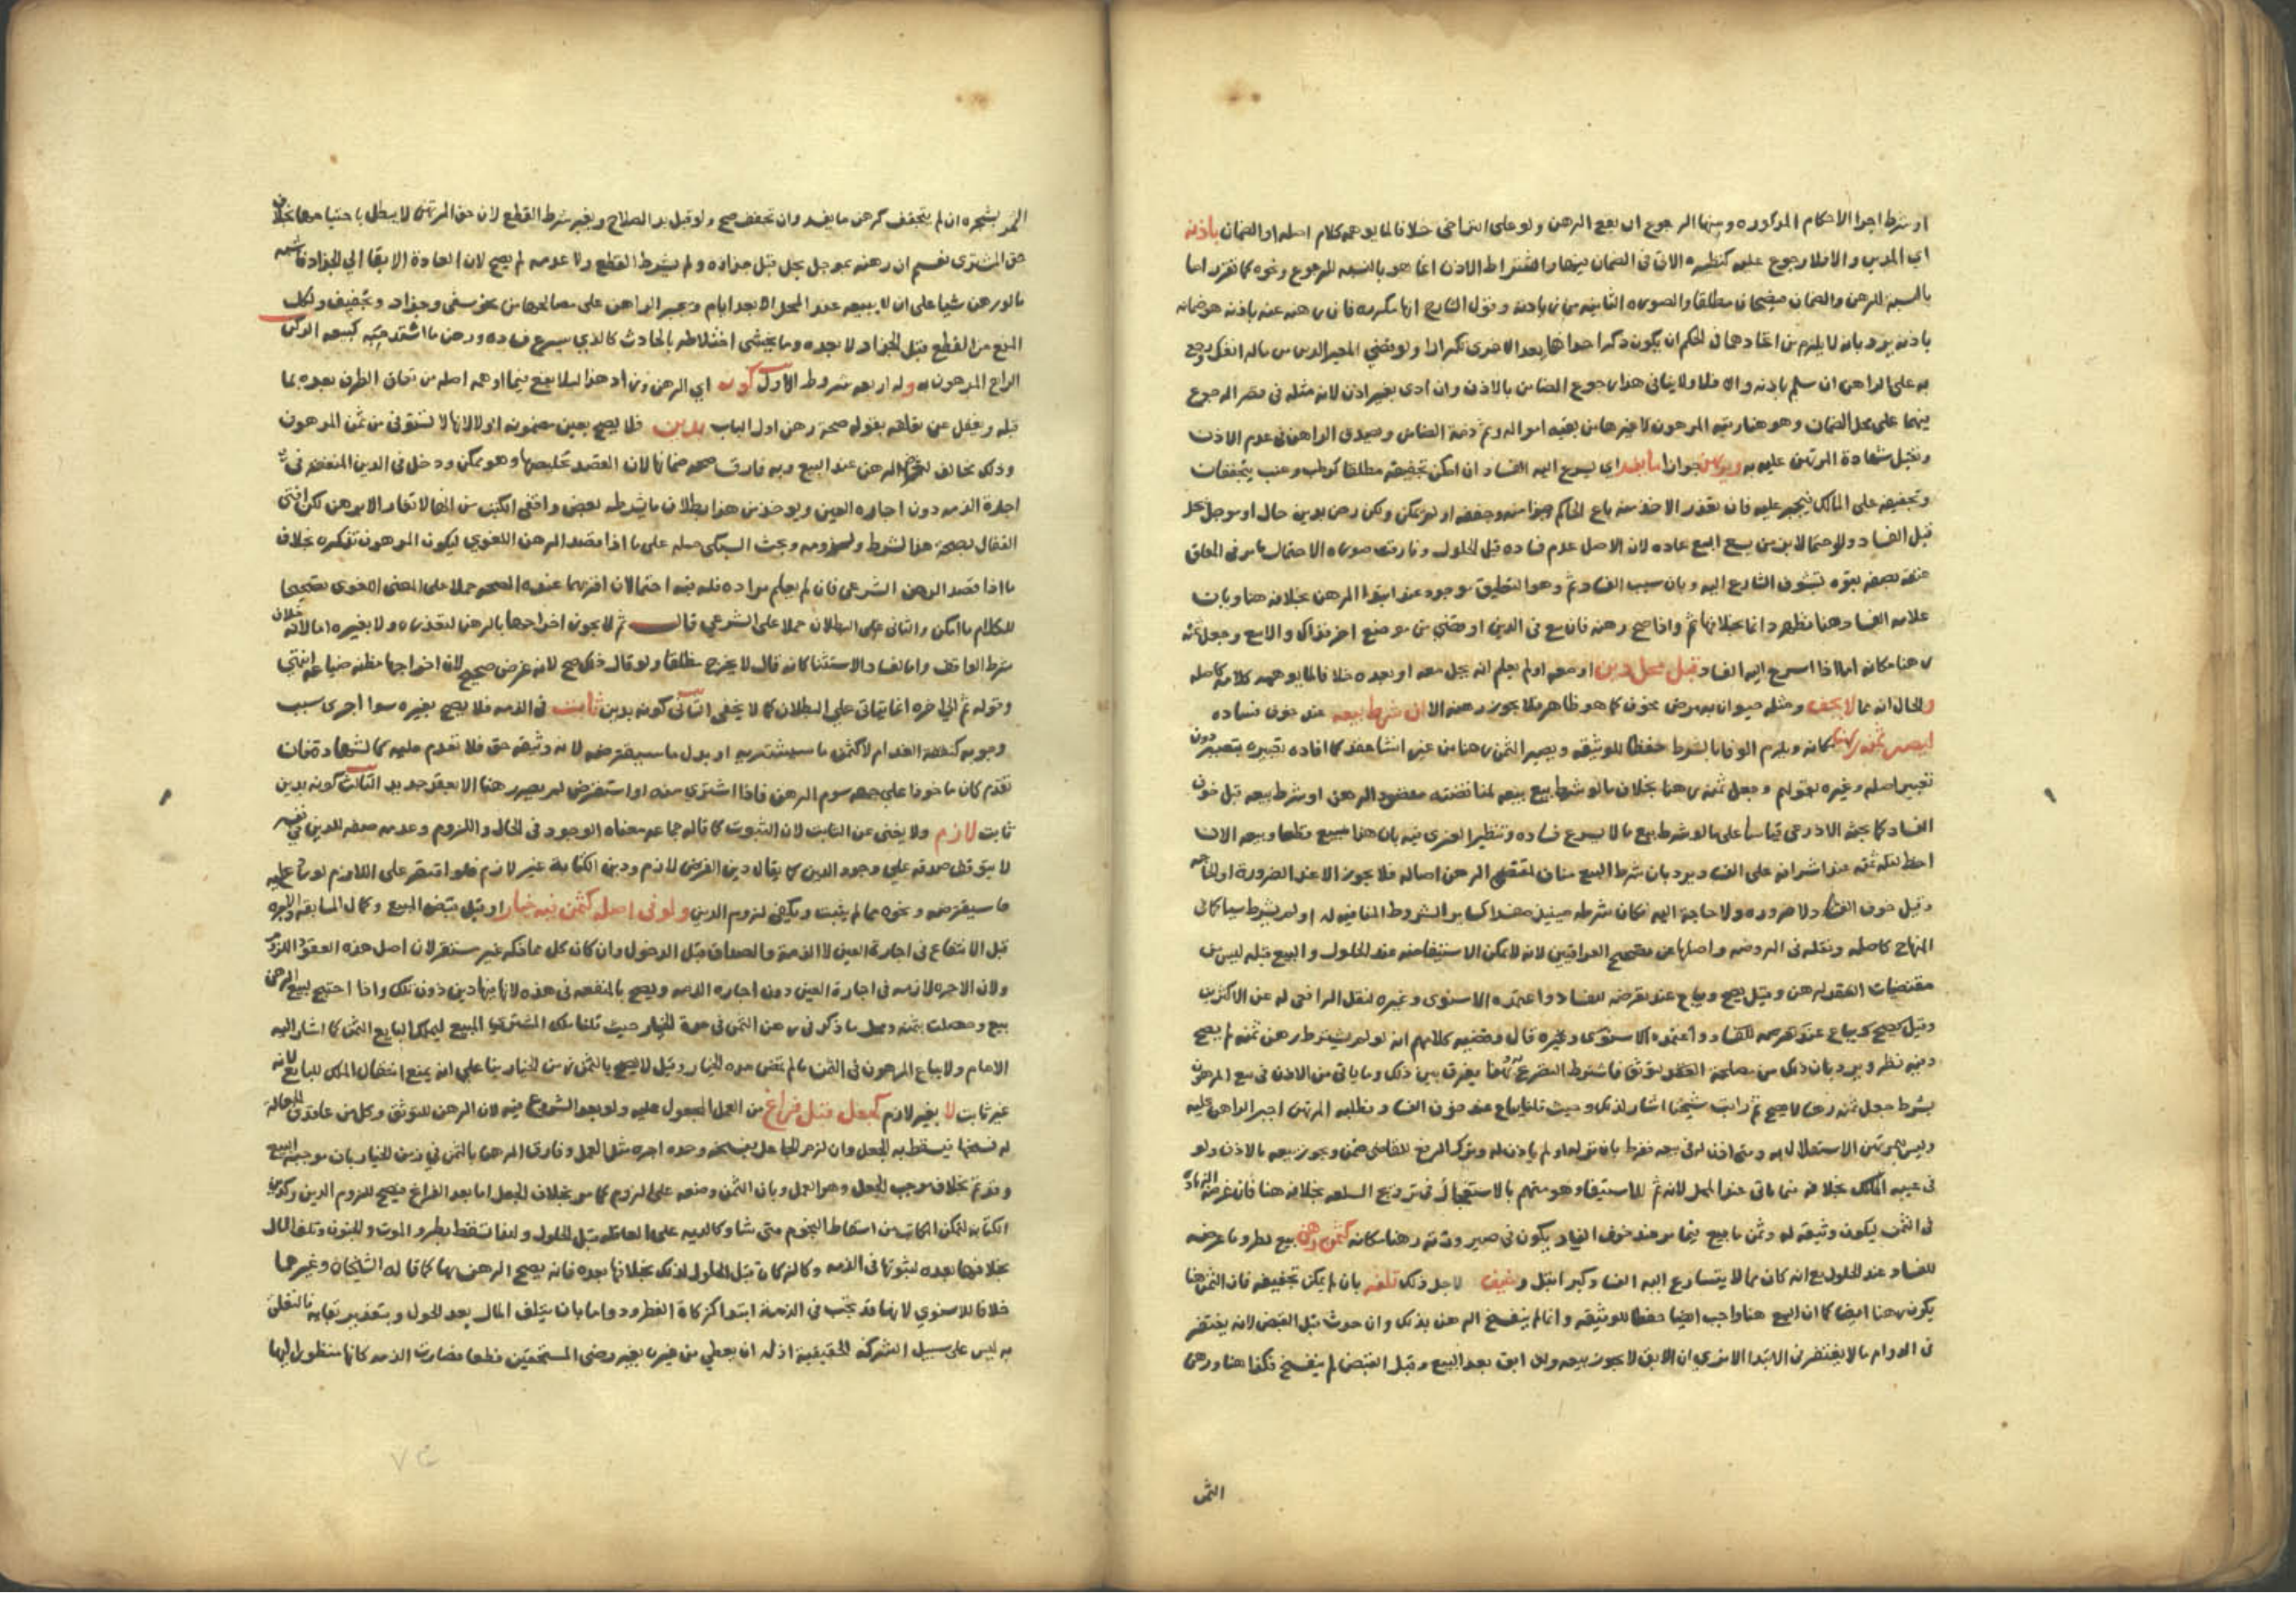 او شرط اجرا الاحكام المذكوره ومنها الرجوع ان بيع الرهن ولو على التراخي خلافا لما يوهمه كلام اصله او الضمان باذنه
اي المدين والا فلا رجوع عليه كنظيره الاتي في الضمان فيهما واشتراط الاذن انما هو بالنسبه للرجوع ونحوه كما تقرر اما
بالنسبة للرهن والضمان فيصحان مطلقا والصوره الثانيه من باذنه وقول الشارح انها مكرره فان رهنه عنه باذنه هو ضمانه
باذنه يرد بانه لا يلزم من اتحادهما في الحكم ان يكون ذكر احداهما بعد الاخرى تكرارا ولو قضي المعير الدين من ماله انفك ورجع
به على الراهن ان سلم باذنه والا فلا ولا ينافي هذا رجوع الضامن بالاذن وان ادى بغير اذن لانه مثله في قصر الرجوع
فيهما على محل الضمان وهو هنا رقبة المرهون لا غيرها من بقيه امواله وثم ذمة الضامن ويصدق الراهن في عدم الاذن
وتقبل شهادة المرتهن عليه به ويرهن جوازا ما يفسد اي يسرع اليه الفساد ان امكن تجفيفه مطلقا كرطب وعنب يتجففان
وتجفيفه على المالك فيجبر عليه فان تعذر الاخذ منه باع الحاكم جزا منه وجففه او لم يمكن ولكن رهن بدين حال او موجل يحل
قبل الفساد ولو احتمالا بزمن يسع البيع عاده لان الاصل عدم فساده قبل الحلول وفارقت صورة الاحتمال ما مر في المعلق
عتقه بصفه بقوه تشوف الشارع اليه وبان سبب الفساد ثم وهو التعليق موجود عند ابتدا الرهن بخلافه هنا وبان
علامه الفساد هنا تظهر دائما بخلافها ثم واذا صح رهنه فان بيع في الدين او قضي من موضع اخر فذاك والا بيع وجعل ثمنه
رهنا مكانه اما اذا اسرع اليه الفساد قبل محل دين او معه او لم يعلم انه يحل معه او بعده خلافا لما يوهمه كلامه كاصله
والحال انه مما لا يجف ومثله حيوان به مرض مخوف كما هو ظاهر فلا يجوز رهنه الا ان شرط بيعه عند خوف فساده
ليصير ثمنه رهنا مكانه ويلزم الوفا بالشرط حفظا للوثيقه ويصير الثمن رهنا من غير انشا عقد كما افاده تعبيره بيصير دون
تعبير اصله وغيره بقولهم وجعل ثمنه رهنا بخلاف ما لو شرط منع بيعه لمناقضته مقصود الرهن او شرط بيعه قبل خوف
الفساد كما بحثه الاذرعي قياسا على ما لو شرط بيع ما لا يسرع فساده وتنظير الغزي فيه بان هذا مبيع قطعا وبيعه الان
احظ لقله ثمنه عند اشرافه على الفساد يرد بان شرط البيع مناف لمقتضى الرهن اصاله فلا يجوز الا عند الضرورة او الحاجه
وقبل خوف الفساد لا ضروره ولا حاجة اليه فكان شرطه حينئذ مفسدا كساير الشروط المنافيه له او لم يشرط شيا كما في
المنهاج كاصله ونقله في الروضه واصلها عن تصحيح العراقيين لانه لا يمكن الاستيفا منه عند الحلول والبيع قبله ليس من
مقتضيات العقد لرهن وقيل يصح ويباع عند تعرضه للفساد واعتمده الاسنوي وغيره لنقل الرافعي له عن الاكثرين
وقيل يصح ويباع عند تعرضه للفساد واعتمده الاسنوي وغيره قال وقضيه كلامهم انه لو لم يشترط رهن ثمنه لم يصح
وفيه نظر ويرد بان ذلك من مصلحة العقد
بشرط جعل ثمنه رهنا لا يصح ثم رايت شيخنا اشار لذلك وحيث قلنا يباع عند خوف الفساد وطلبه المرتهن اجبر الراهن عليه
وليس للمرتهن الاستقلال به ومتى اذن له في بيعه ففرط بان تركه او لم ياذن له وترك الرفع للقاضي ضمن ويجوز بيعه بالاذن ولو
في غيبه المالك بخلافه فيما ياتي عند المحل لانه ثم للاستيفا وهو متهم بالاستعجال في ترويج السلعه بخلافه هنا فان غرضه الزياده
في الثمن ليكون وثيقه له وثمن ما بيع فيما مر عند خوف الفساد يكون في صيرورته رهنا مكانه كثمن رهن بيع لطرو ما عرضه
للفساد عند الحلول مع انه كان مما لا يتسارع اليه الفساد كبر ابتل وخيف لاجل ذلك تلفه بان لم يمكن تجفيفه فان الثمن هنا
يكون رهنا ايضا كما ان البيع هنا واجب ايضا حفظا للوثيقه وانما لم ينفسخ الرهن بذلك وان حدث قبل القبض لانه يغتفر
في الدوام ما لا يغتفر في الابتدا الا تري ان الابق لا يجوز بيعه ولو ابق بعد البيع وقبل القبض لم ينفسخ فكذا هنا ورهن
الثمر
الثمر بشجره ان لم يتجفف كرهن ما يفسد وان تجفف صح ولو قبل بدو الصلاح وبغير شرط القطع لان حق المرتهن لا يبطل باجتياحها بخلاف
حق المشتري نعم ان رهنه بموجل يحل قبل جذاذه ولم يشرط القطع ولا عدمه لم يصح لان العادة الابقا الي الجذاذ فاشبه
ما لو رهن شيا على ان لا يبيعه عند المحل الا بعد ايام ويجبر الراهن على مصالحها من نحو سقي وجذاذ وتجفيف ولكل
المنع من القطع قبل الجذاذ لا بعده وما يخشى اختلاطه بالحادث كالذي يسرع فساده ورهن ما اشتد حبه كبيعه الركن
الرابع المرهون به وله اربعه شروط الاول كونه اي الرهن وزاد هذا ليلا يقع فيما اوهمه اصله من تعلق الظرف بعده بما
قبله وغفل عن تعلقه بقوله صحة رهن اول الباب بدين فلا يصح بعين مضمونه اولا لانها لا تستوفى من ثمن المرهون
وذلك مخالف لغرض الرهن عند البيع وبه فارق صحه ضمانها لان القصد تحصيلها وهو ممكن ودخل في الدين المنفعه في
اجارة الذمه دون اجاره العين ويوخذ من هذا بطلان ما يشرطه بعض واقفي الكتب من انها لا تعار الا برهن لكن افتى
القفال بصحة هذا الشرط ولزومه وبحث السبكي حمله على ما اذا قصد الرهن اللغوي ليكون المرهون تذكره بخلاف
ما اذا قصد الرهن الشرعي فان لم يعلم مراده فله فيه احتمالان اقربهما عنده الصحه حملا على المعنى اللغوى تصحيحا
للكلام ما امكن والثاني على البطلان حملا على الشرعي قال ثم لا يجوز اخراجها بالرهن لتعذره ولا بغيره اما لانه خلاف
شرط الواقف واما لفساد الاستثنا كانه قال لا يخرج مطلقا ولو قال ذلك صح لانه غرض صحيح لان اخراجها مظنه ضياعها انتهى
وقوله ثم الى اخره انما ياتي علي البطلان كما لا يخفى الثاني كونه بدين ثابت في الذمه فلا يصح بغيره سوا اجرى سبب
وجوبه كنفقة الغد ام لا كثمن ما سيشتريه او بدل ما سيقترضه لانه وثيقه حق فلا تقدم عليه كالشهاده فان
تقدم كان ماخوذا على جهه سوم الرهن فاذا اشترى منه او استقرض لم يصر رهنا الا بعقد جديد الثالث كونه بدين
ثابت لازم ولا يغني عن الثابت لان الثبوت كما قاله جماعه معناه الوجود في الحال واللزوم وعدمه صفه للدين في نفسه
لا يتوقف صدقه علي وجود الدين كما يقال دين القرض لازم ودين الكتابة غير لازم فلو اقتصر على اللازم لورد عليه
ما سيقرضه ونحوه مما لم يثبت ويكفي لزوم الدين ولو في اصله كثمن فيه خيار او قبل قبض المبيع وكمال المسابقه والاجره
قبل الانتفاع في اجارة العين لا الذمة والصداق قبل الدخول وان كان كل مما ذكر غير مستقر لان اصل هذه العقود اللزوم
ولان الاجره لازمه في اجارة العين دون اجاره الذمه ويصح بالمنفعه في هذه لانها فيها دين دون تلك واذا احتيج لبيع الرهن
بيع وحصلت بثمنه ومحل ما ذكر في رهن الثمن في مدة الخيار حيث قلنا ملك المشتري المبيع ليملك البايع الثمن كما اشار اليه
الامام ولا يباع المرهون في الثمن ما لم تمض مده الخيار وقيل لا يصح بالثمن زمن الخيار بنا على انه يمنع انتقال الملك للبايع لانه
غير ثابت لا بغير لازم كجعل قبل فراغ من العمل المجعول عليه ولو بعد الشروع فيه لان الرهن للتوثق وكل من عاقدي الجعاله
له فسخها فيسقط به الجعل وان لزم الجاعل بفسخه وحده اجره مثل العمل وفارق الرهن بالثمن في زمن الخيار بان موجبه البيع
وقد تم بخلاف موجب الجعل وهو العمل وبان الثمن وضعه على اللزوم كما مر بخلاف الجعل اما بعد الفراغ فيصح للزوم الدين وكدين
الكتابه لتمكن المكاتب من اسقاط النجوم متى شا وكالديه على العاقله قبل الحلول ولهذا تسقط بطرو الموت والجنون وتلف المال
بخلافها بعده لثبوتها في الذمه وكالزكاة قبل الحلول لذلك بخلافها بعده فانه يصح الرهن بها كما قاله الشيخان وغيرهما
خلافا للاسنوي لانها قد تجب في الذمة ابتدا كزكاة الفطر ودواما بان يتلف المال بعد الحول وبتقدير بقايه فالتعلق
به ليس على سبيل الشركة الحقيقية اذ له ان يعطي من غيره بغير رضى المستحقين قطعا فصارت الذمه كانها منظورا اليها